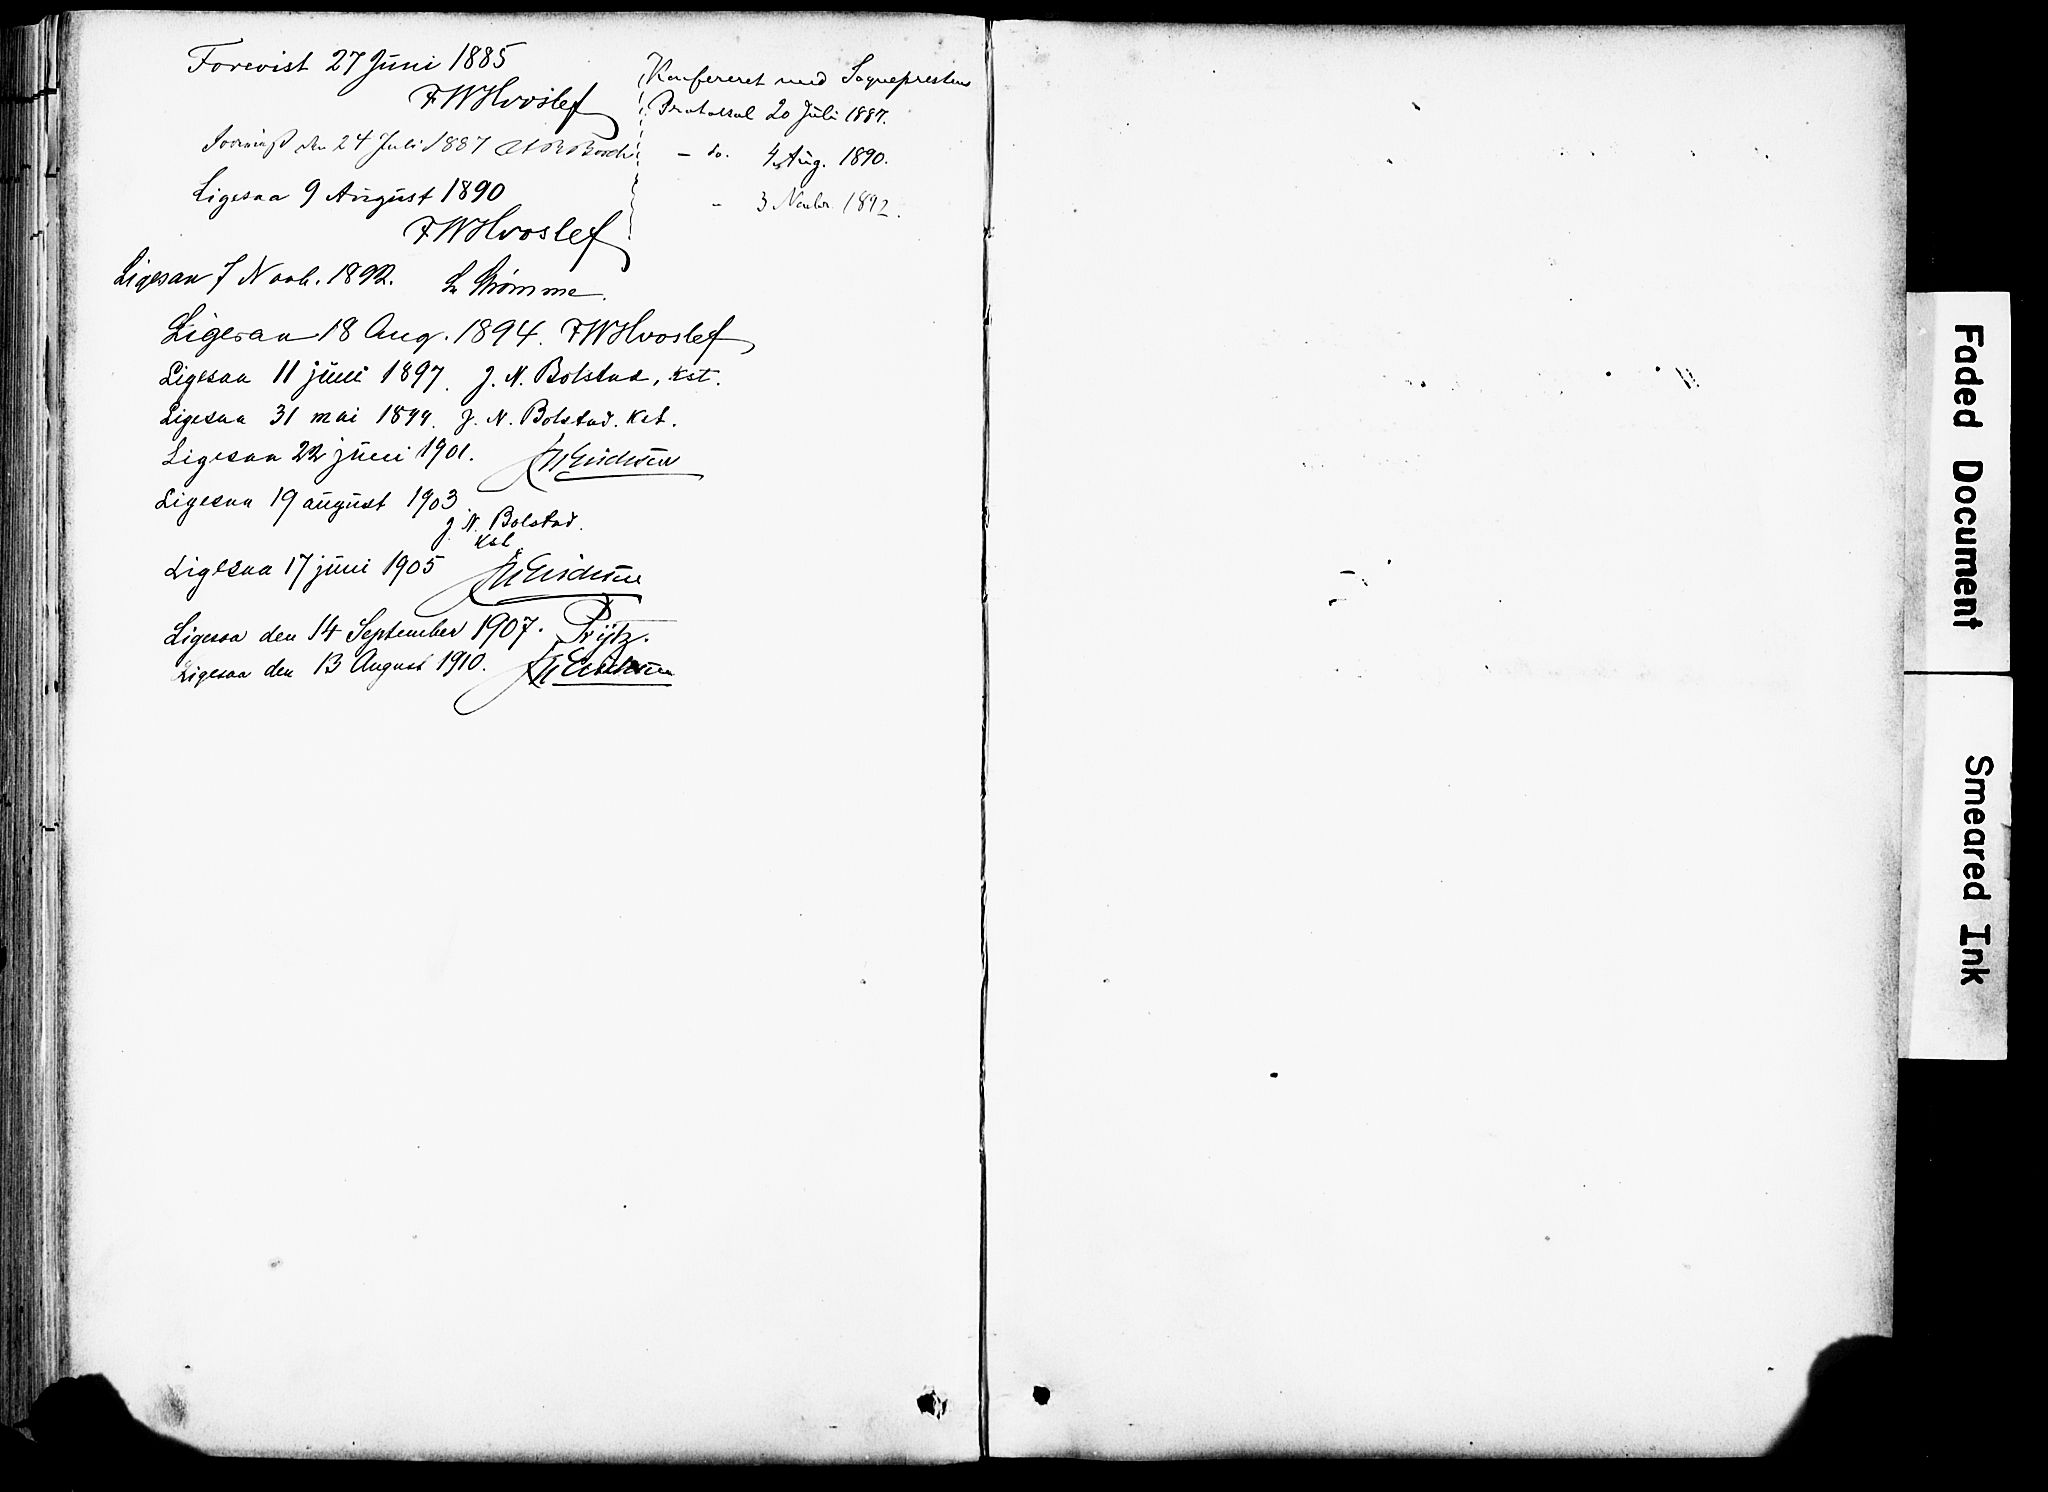 Forevist 27 Juni 1885
FW Hvoslef
Forevist den 24 Juli 1887
Ligesaa 9 August 1890
FW Hvoslef
Ligesaa 7 Novb. 1892. Chr Strømme.
Ligesaa 18 Aug. 1894. FW Hvoslef
Ligesaa 11 juni 1897. J. N. Bolstad, kst.
Ligesaa 31 mai 1899. J. N. Bolstad. kst.
Ligesaa 22 juni 1901.
Ligesaa 19 august 1903
J. N. Bolstad.
kst.
Ligesaa 17 juni 1905
Ligesaa den 14 September 1907. Prÿtz.
Ligesaa den 13 August 1910.
Konfereret med Sognepresten
Protokol 20 Juli 1887.
– do. 4 Aug. 1890.
– 3 Novbr. 1892.
Faded Document
Smeared Ink